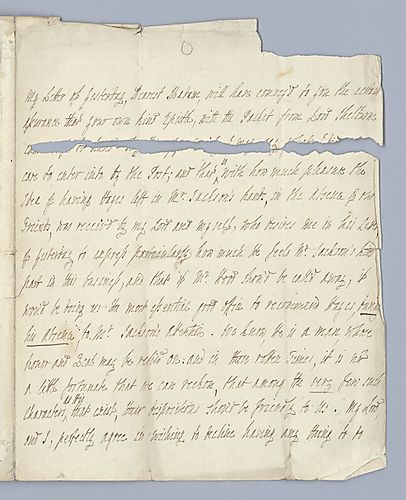 My Letter of Yesterday, Dearest Madam, will have convey'd to you the certain
appearance that your own kind Epistle, with the Packet from Lord Shelburne
care to enter into by the Post: and that, with how much pleasure the
Idea of having Hayes left in Mr. Jackson's hands, in the absence of our
Friends was received by my Lord and myself, who desires me in his Letter
of yesterday to express particularly how much He feels Mr. Jackson's kind
part in this business, and that if Mr. Hood shou'd be call'd away, it
wou'd be doing us the most essential good office to recommend Hayes during
his absence to Mr. Jackson's attention. We know He is a man whose
honor and Zeal may be relied on: and in these rotten Times, it is not
a little fortunate that we can reckon, that among the very few such
Characters, as that exist, their dispositions shou'd be friendly to us. My Lord
and I, perfectly agree in wishing to decline having any thing to do